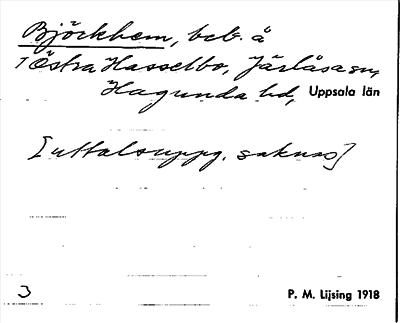 Björkhem, beb. å
1 Östra Hasselbo, Järlåsa sn,
Hagunda hd, Uppsala län
[uttalsuppg. saknas]
3 P. M. Lijsing 1918